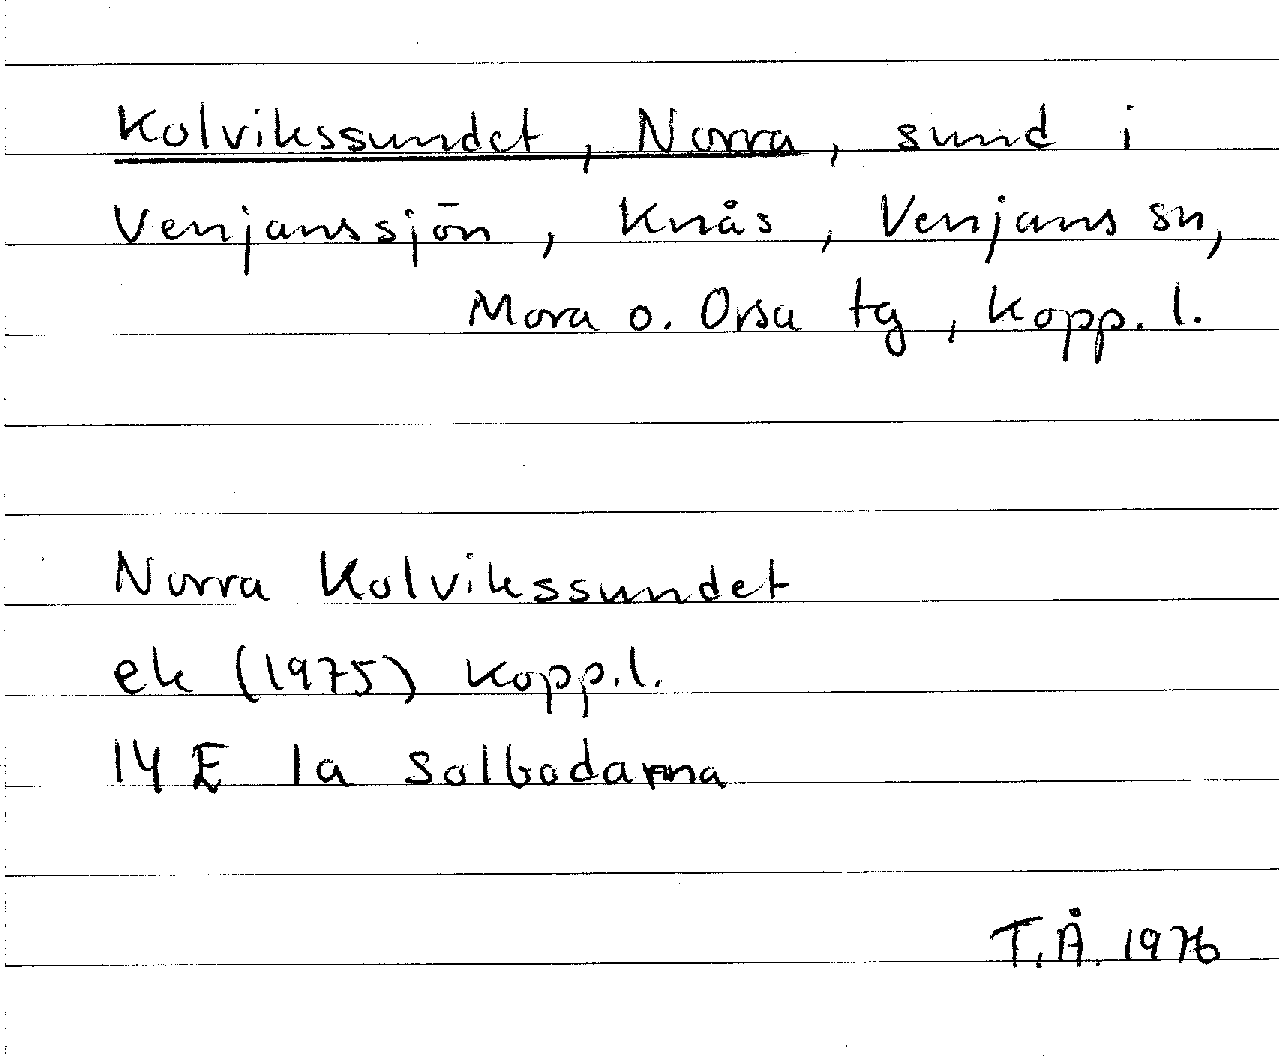 Kolvikssundet, Norra, sund i
Venjanssjön, Knås, Venjans sn,
Mora o. Orsa tg, Kopp. l.
Norra Kolvikssundet
ek (1975) Kopp.l.
14 E 1a Solbodarna
T.Å. 1976